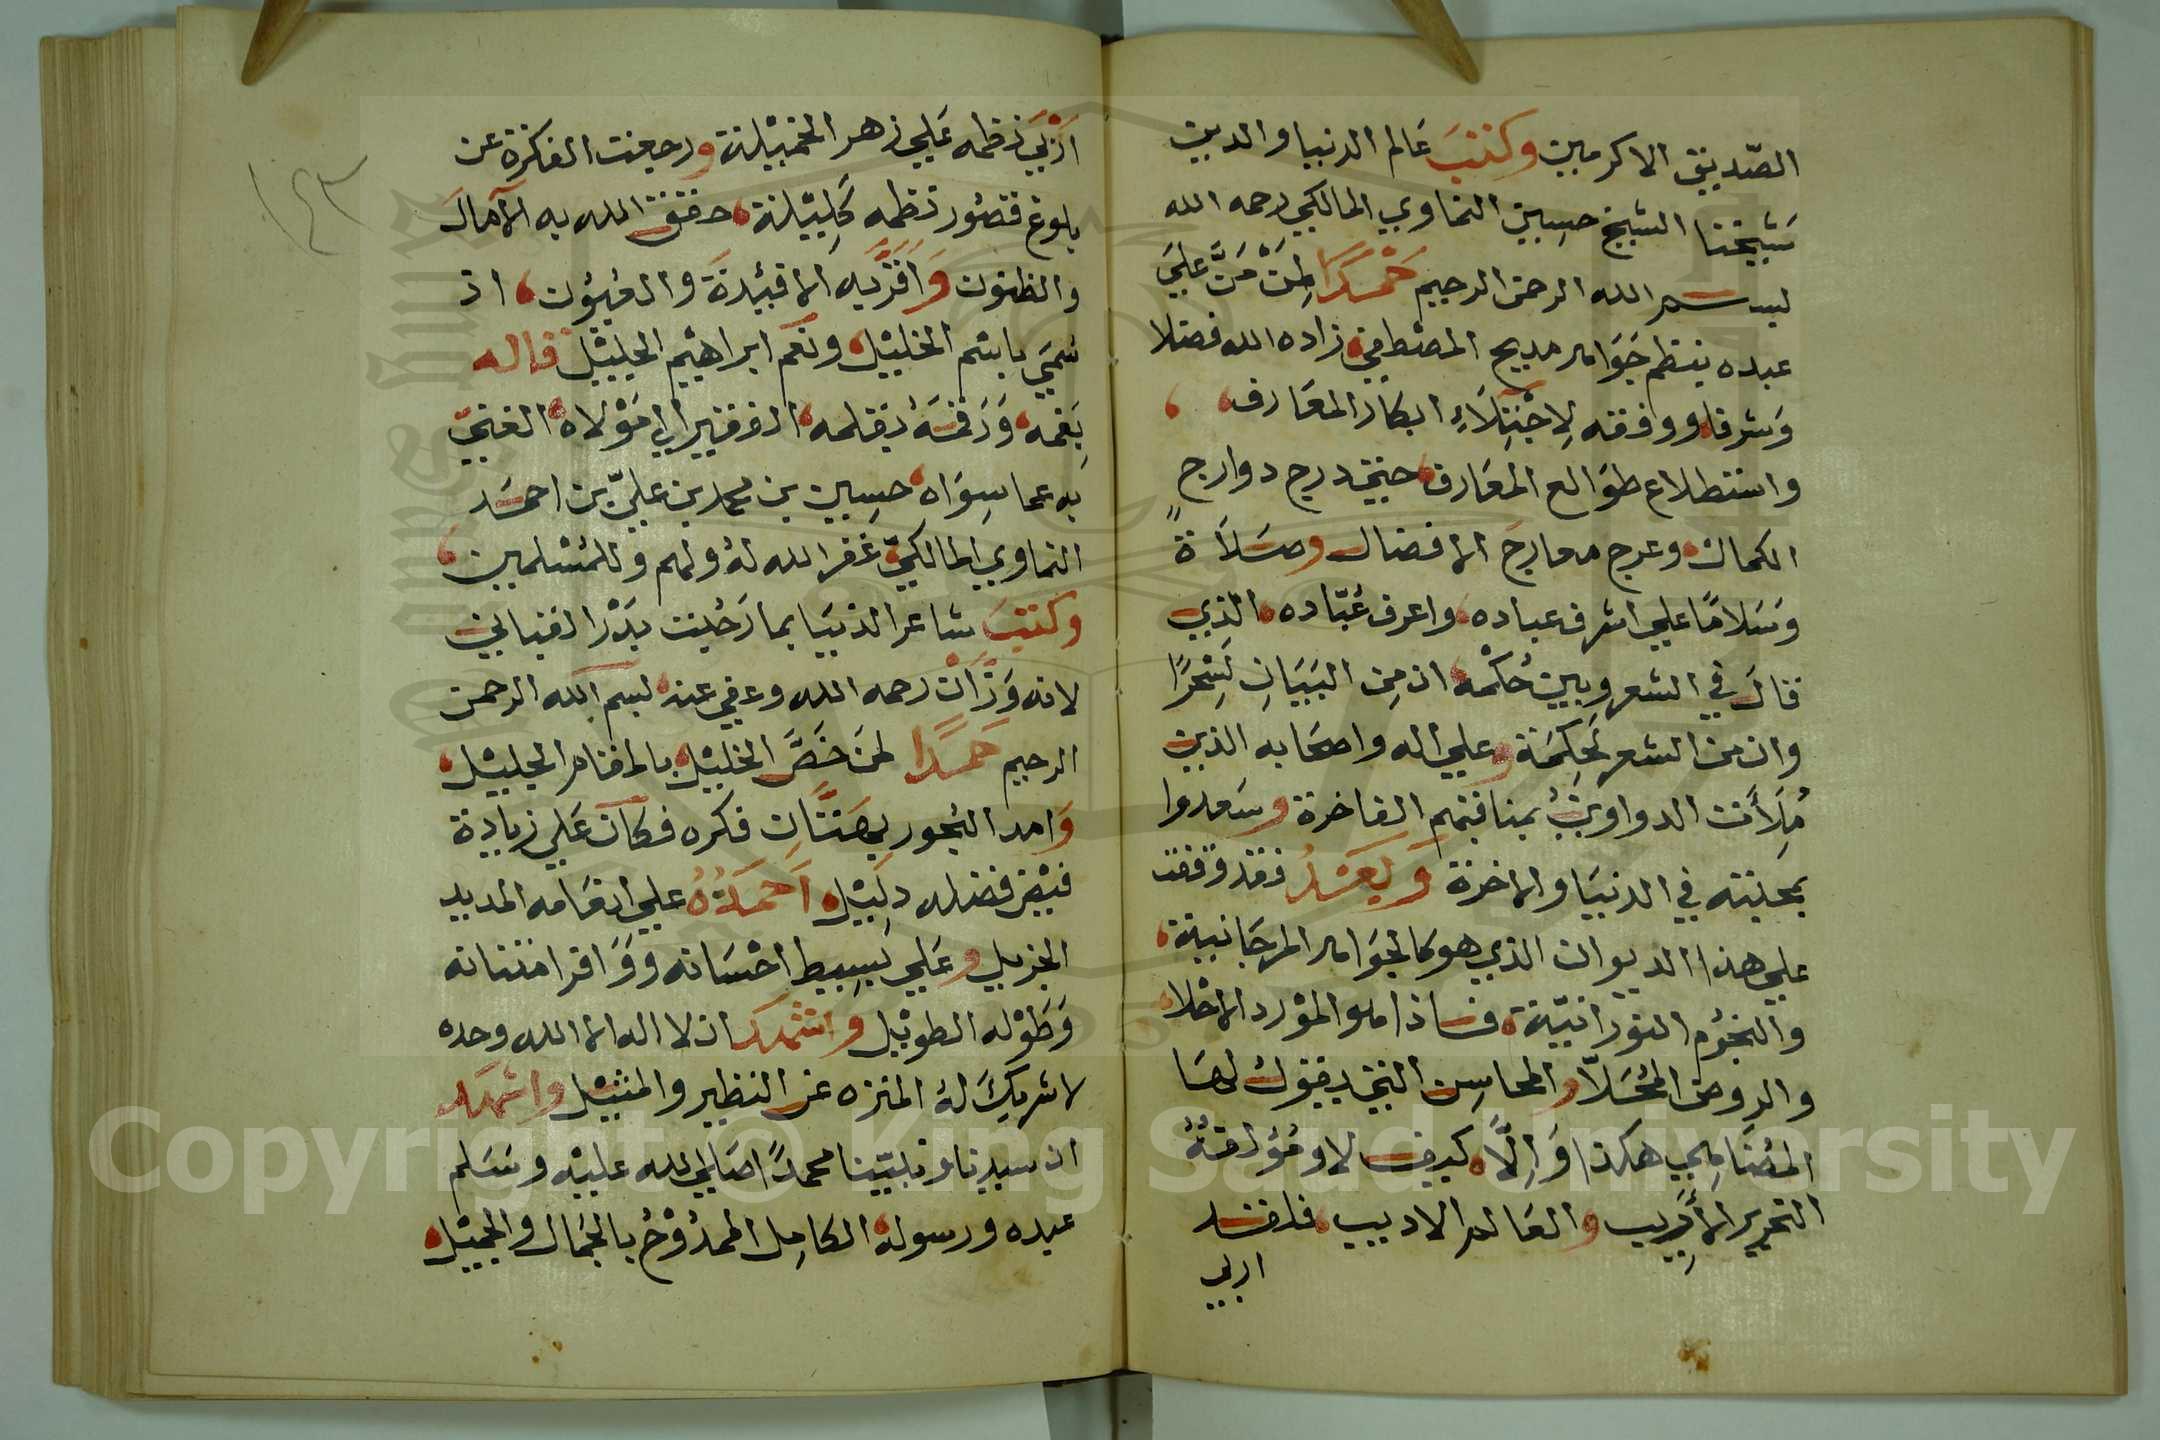 الصّديق الاكرمين وكتبَ عَالم الدنيا والدين
شيخنا الشيخ حسين النماوي المالكي رحمه الله
بسم الله الرحمن الرحيم حَمْدًا لمَنْ مَنَّ عَليَ
عبده بنظم جَوَاهر مديح المصْطفي زاده الله فضلا
وَشرفا ووفقه لِاجْتِلَاءِ ابكار المعَارف
واستطلاع طوَالع المعَارف حتي درج دوارج
الكمال وعرج معارجَ الافضال وصَلَاةً
وَسَلامًا علي اشرف عباده واعرف عُبّاده الذي
قالَ في الشعر وبين حُكْمه ان مِن البَيَانِ لَسِحْرًا
وان من الشعر لَحِكمَة وعلي اله واصحَابه الذين
مُلِأَت الدواوينُ بمناقبهم الفاخرة وسَعدوا
بمحبته في الدنيَا والاخرة وَبَعْدُ فقد وقفت
علي هذا الديوان الذي هو كالجوَاهر المرجَانية
والنجُوم النورانيّة فاذا هو المَوْرد الاحْلا
والروض المُحَلاّ والمحاسِن التي يقول لهَا
المُضَاهِي هكذا وَاِلَّا كيف لا ومُؤَلفُهُ
النحرير الأَرِيب والعَالم الاديب فلقد
اربي
اَرْبَي نظمه عَلي زهر الخَمِيْلة ورجعت الفكرة عن
بلوغ قصُور نظمه كَلِيْلة حقق الله به الآمالَ
والظنون وَاَقَرَّ به الافئِدةَ والعُيُون اذ
سُمّي باسْم الخليْل ونعم ابراهيْم الجليْل قاله
بِفمه وَرَقمَهُ بقلمه الفقير الي مَوْلاه الغنيّ
به عما سِوَاه حسِين بن محمد بن عليّ بن احمَد
النماوي المالكيّ غفر الله لهُ ولهم وللمُسْلمين
وكتبَ شاعر الدنيَا بما رَحُبت بَدْر الدين
لانه وَزَّان رحمه الله وعفي عنه بسم الله الرحمن
الرحيم حَمْدًا لمن خَصَّ الخليْل بالمقام الجليْل
وَامد البُحور بِصَنَّاتِ فكره فكان عَلي زيادة
فيْض فضله دلِيْل اَحْمَدُهُ علي انعَامه المديد
الجزيل وعَلي بَسِيط احْسَانه وَوَافر امتنانه
وَطَوْله الطويْل واشْهَد ان لا اله الا الله وحده
لا شريكَ لهُ المنزه عن النظير والمثيْل واشهد
ان سيدنا ونبيّنا محمدًا صَلي الله عليْه وسَلم
عبده ورسوله الكامِل الممدُوْحُ بالجَمال والجميْل